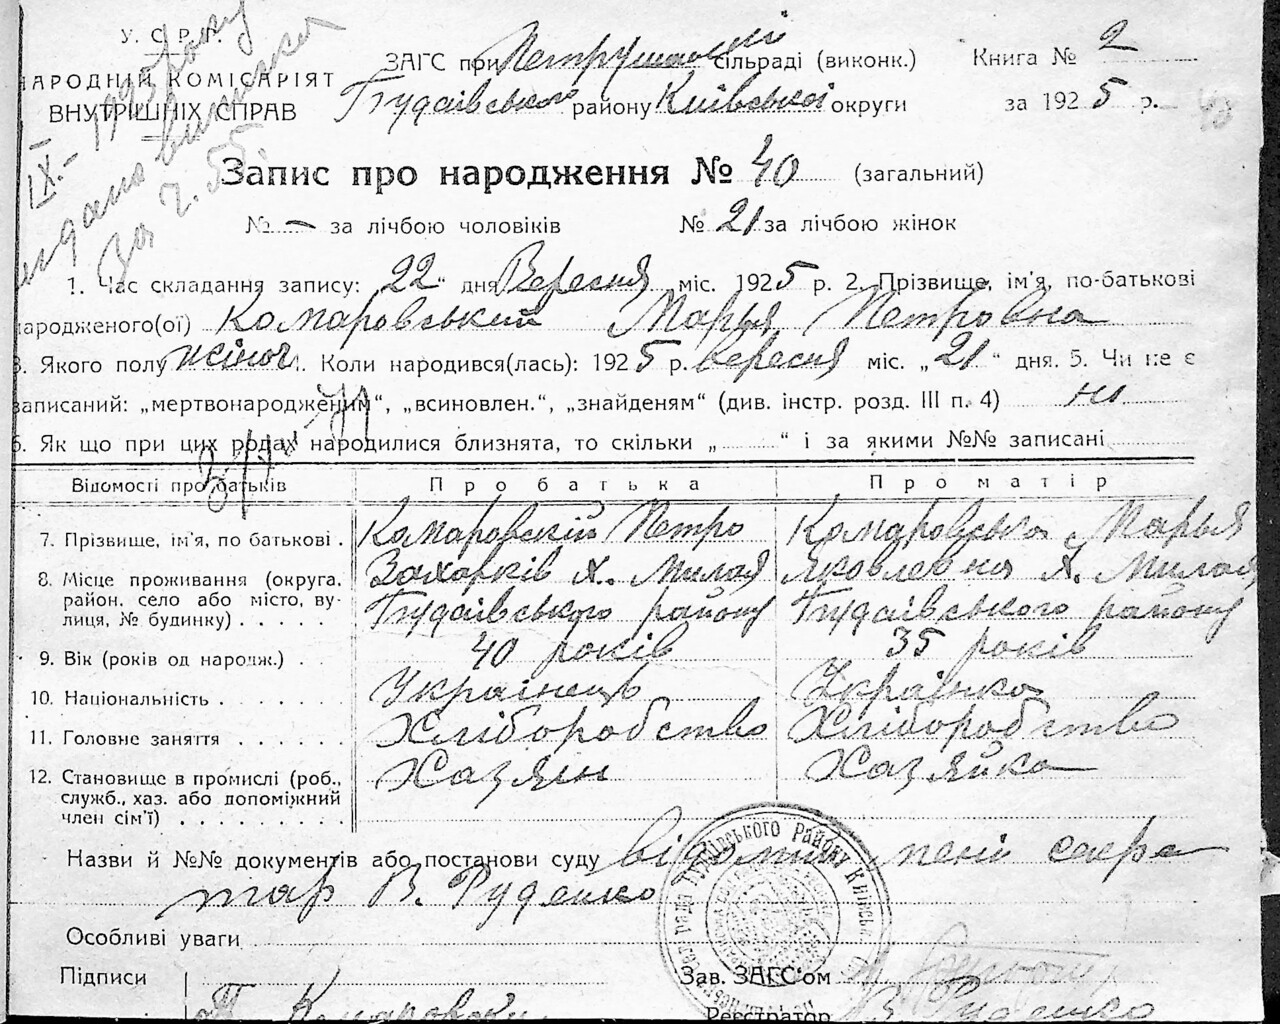 У. С. Р. Р.
НАРОДНІЙ КОМІСАРІЯТ
ВНУТРІШНІХ СПРАВ
ЗАГС при сільраді (виконк.) Книга № 2
Будаівського району Київської округи за 1925 р.
IX.
видано виписка
за ч. 55.
Запис про народження № 40 (загальний)
№ — за лічбою чоловіків № 21 за лічбою жінок
1. Час складання запису: „22“ дня Вересня міс. 1925 р. 2. Прізвище, ім'я, по-батькові
народженого(ої) Комаровський Марья Петровна
3. Якого полу жіноч. Коли народився(лась): 1925 р. вересня міс. „21“ дня. 5. Чи не є
записаний: „мертвонародженим“, „всиновлен.“, „знайденям“ (див. інстр. розд. III п. 4) ні
6. Як що при цих родах народилися близнята, то скільки „ “ і за якими №№ записані
Відомості про батьків Про батька Про матір
7. Прізвище, ім'я, по батькові . Комаровскій Петро Комаровська Марья
8. Місце проживання (округа, Захарків Х. Милая Яковлевна Х. Милая
район, село або місто, ву-
лиця, № будинку) . . . . . Будаівського району Будаівського району
9. Вік (років од народж.) . . 40 років 35 років
10. Національність . . . . . . Українець Українка
11. Головне заняття . . . . . . Хліборобство Хліборобство
12. Становище в промислі (роб., Хазяін Хазяйка
служб., хаз. або допоміжний
член сім'ї) . . . . . . . . .
Назви й №№ документів або постанови суду
В. Руденко
Особливі уваги
Підписи Зав. ЗАГС'ом
П. Комаровський Реєстратор В. Руденко